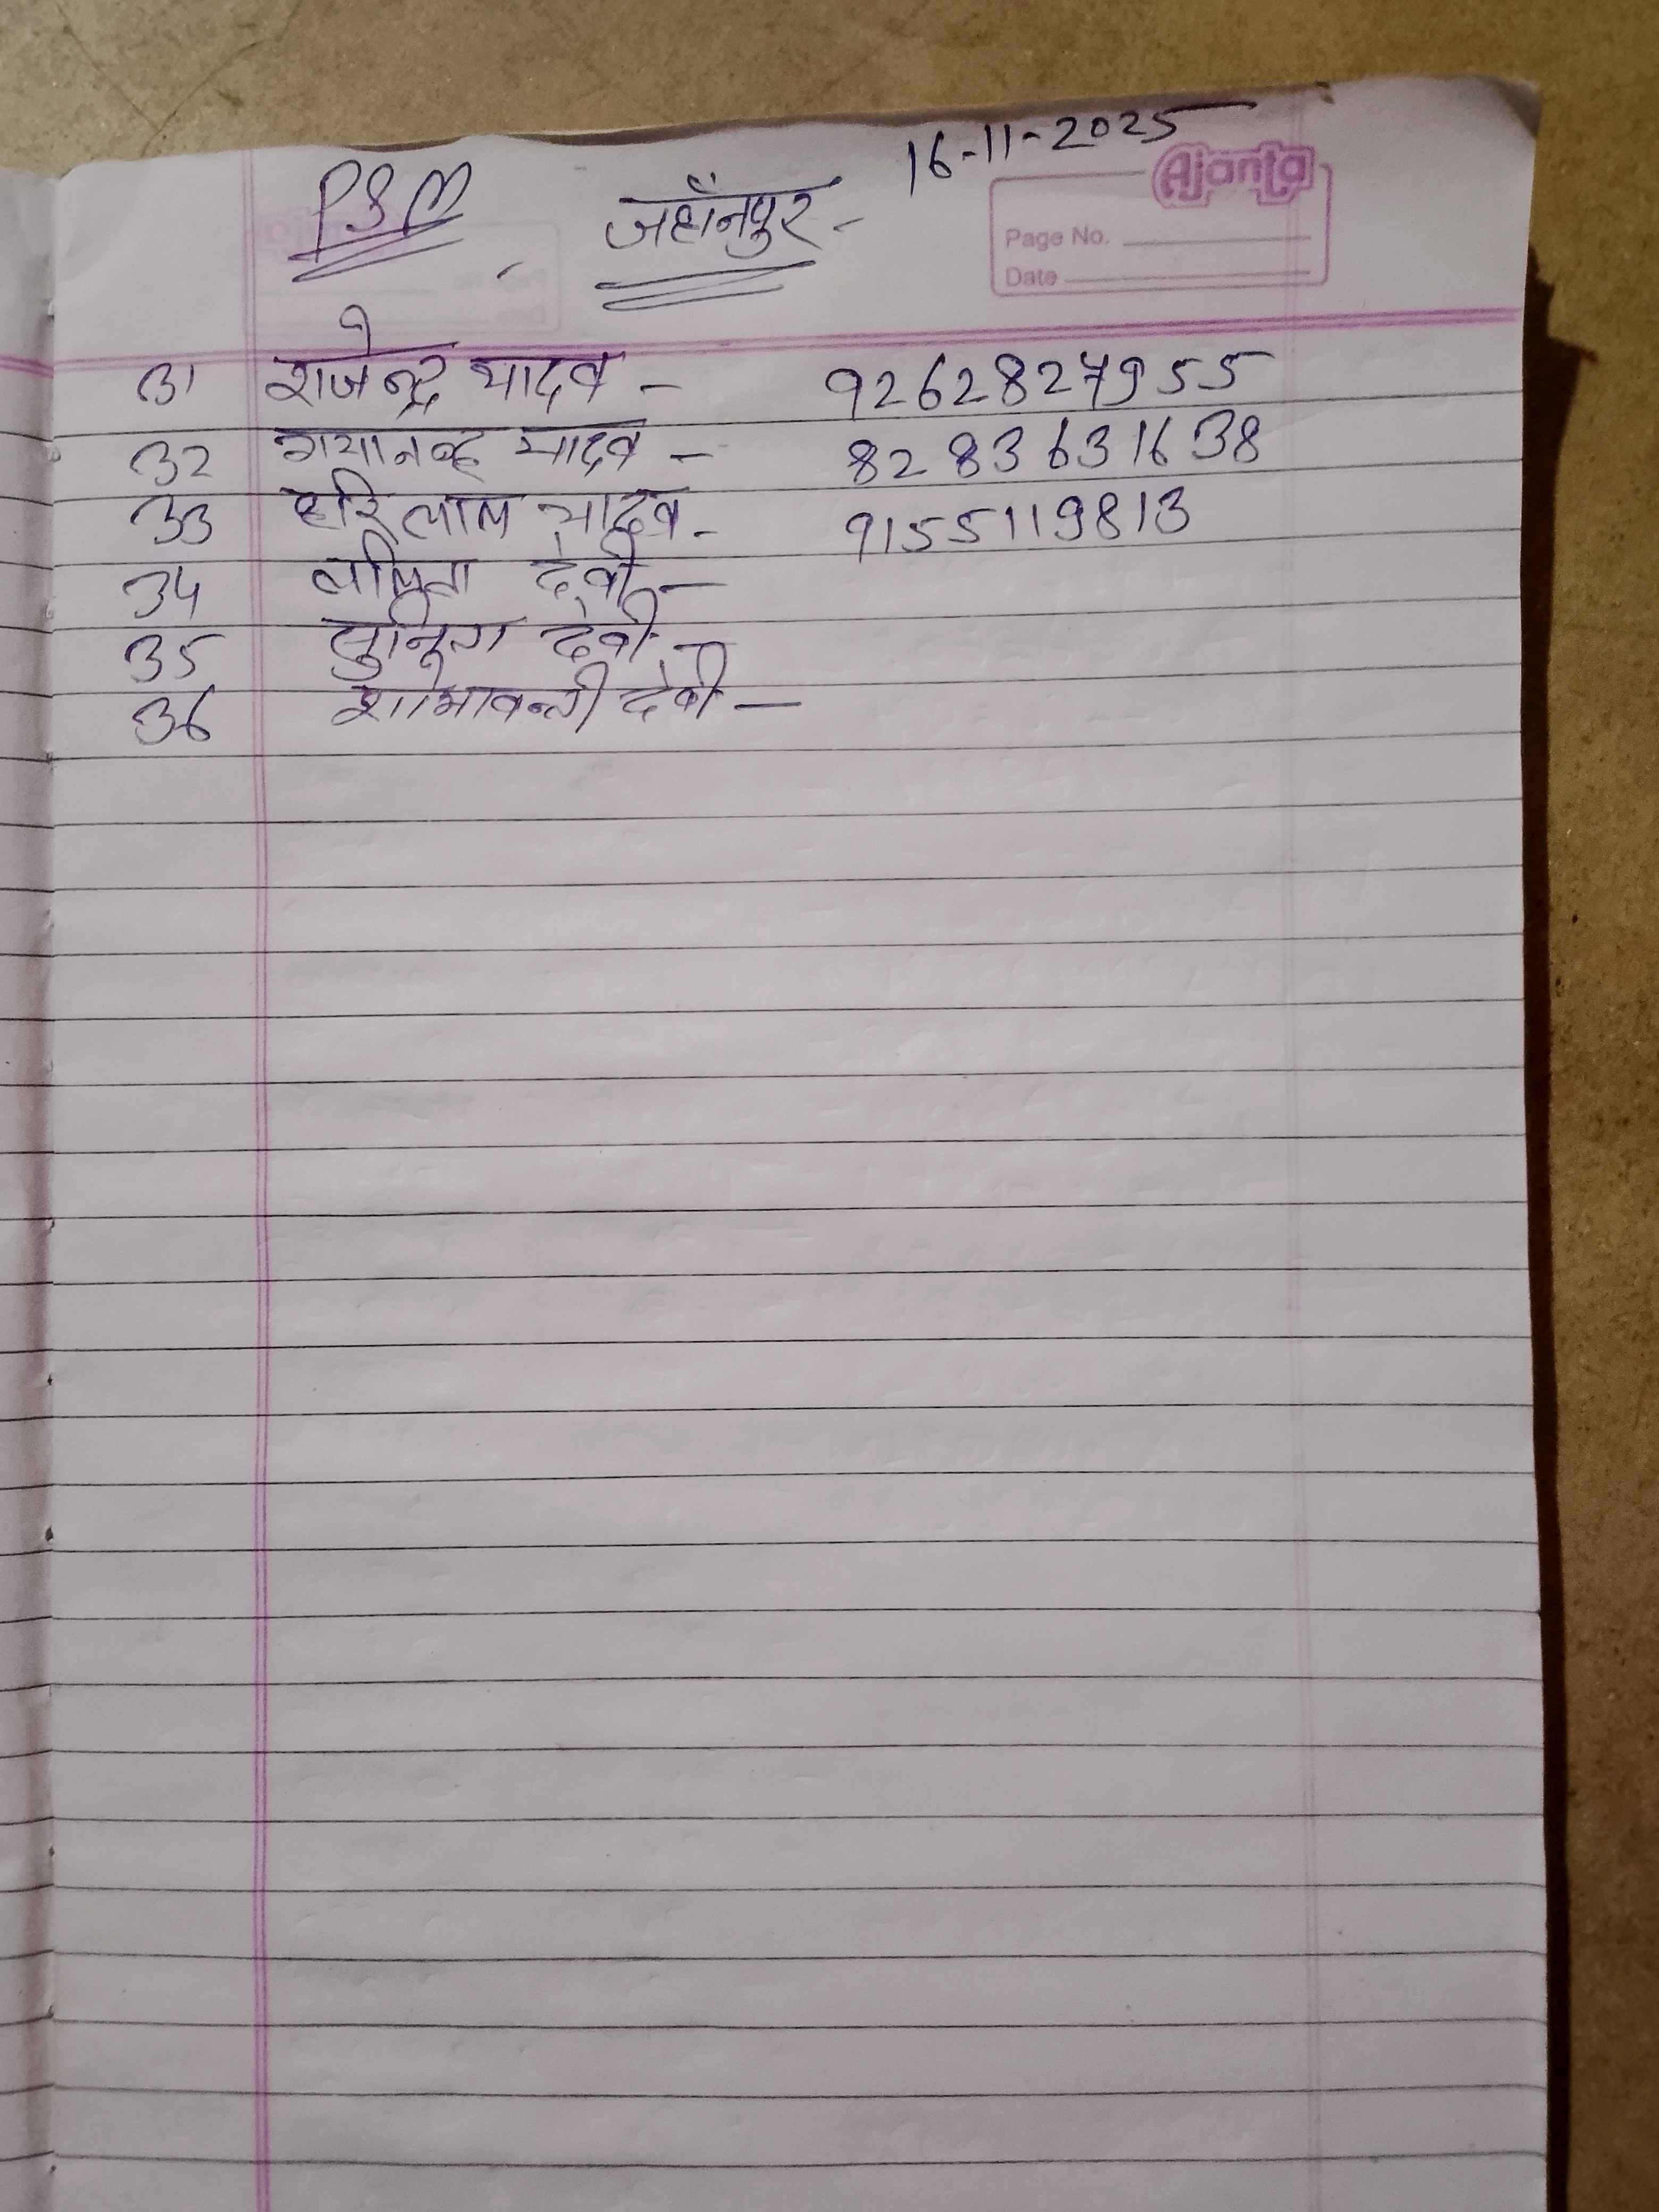 16-11-2025
PSM, जहाँनपुर -
Ajanta
Page No.
Date
31 राजेन्द्र यादव - 9262827955
32 गयानन्द यादव - 8283631638
33 हरिलाल यादव - 9155119813
34 देवी -
35 सुनिता देवी -
36 शोभावन्ती देवी -